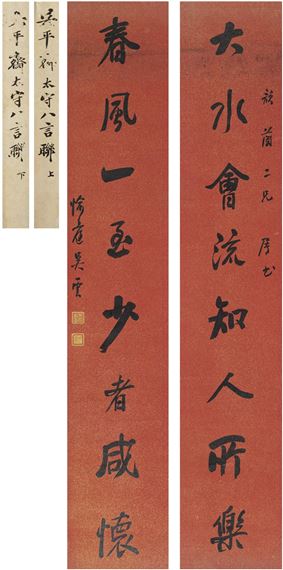 大水會流知人所樂
敬茵二兄 屬書
春風一至少者咸懷
愉庭吳雲
吳平齋太守八言聯 上
吳平齋太守八言聯 下